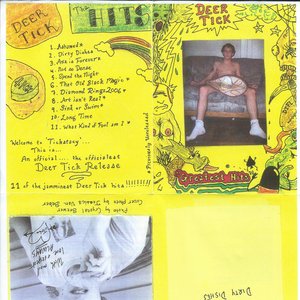 DEER TICK
THE HITS
1. Ashamed *
2. Dirty Dishes
3. Ask is Forever *
4. Not so Dense
5. Spend the Night
6. That Old Black Magic *
7. Diamond Rings 2006 *
8. Art isn't Real *
9. Sink or Swim *
10. Long Time
11. What Kind of Fool am I *
* Previously Unreleased
Welcome to "Ticksteasy"...
This is...
An official.... the officialest
Deer Tick Release
11 of the jamminest Deer Tick hits !!!!
DEER TICK
Greatest Hits
DIRTY DISHES